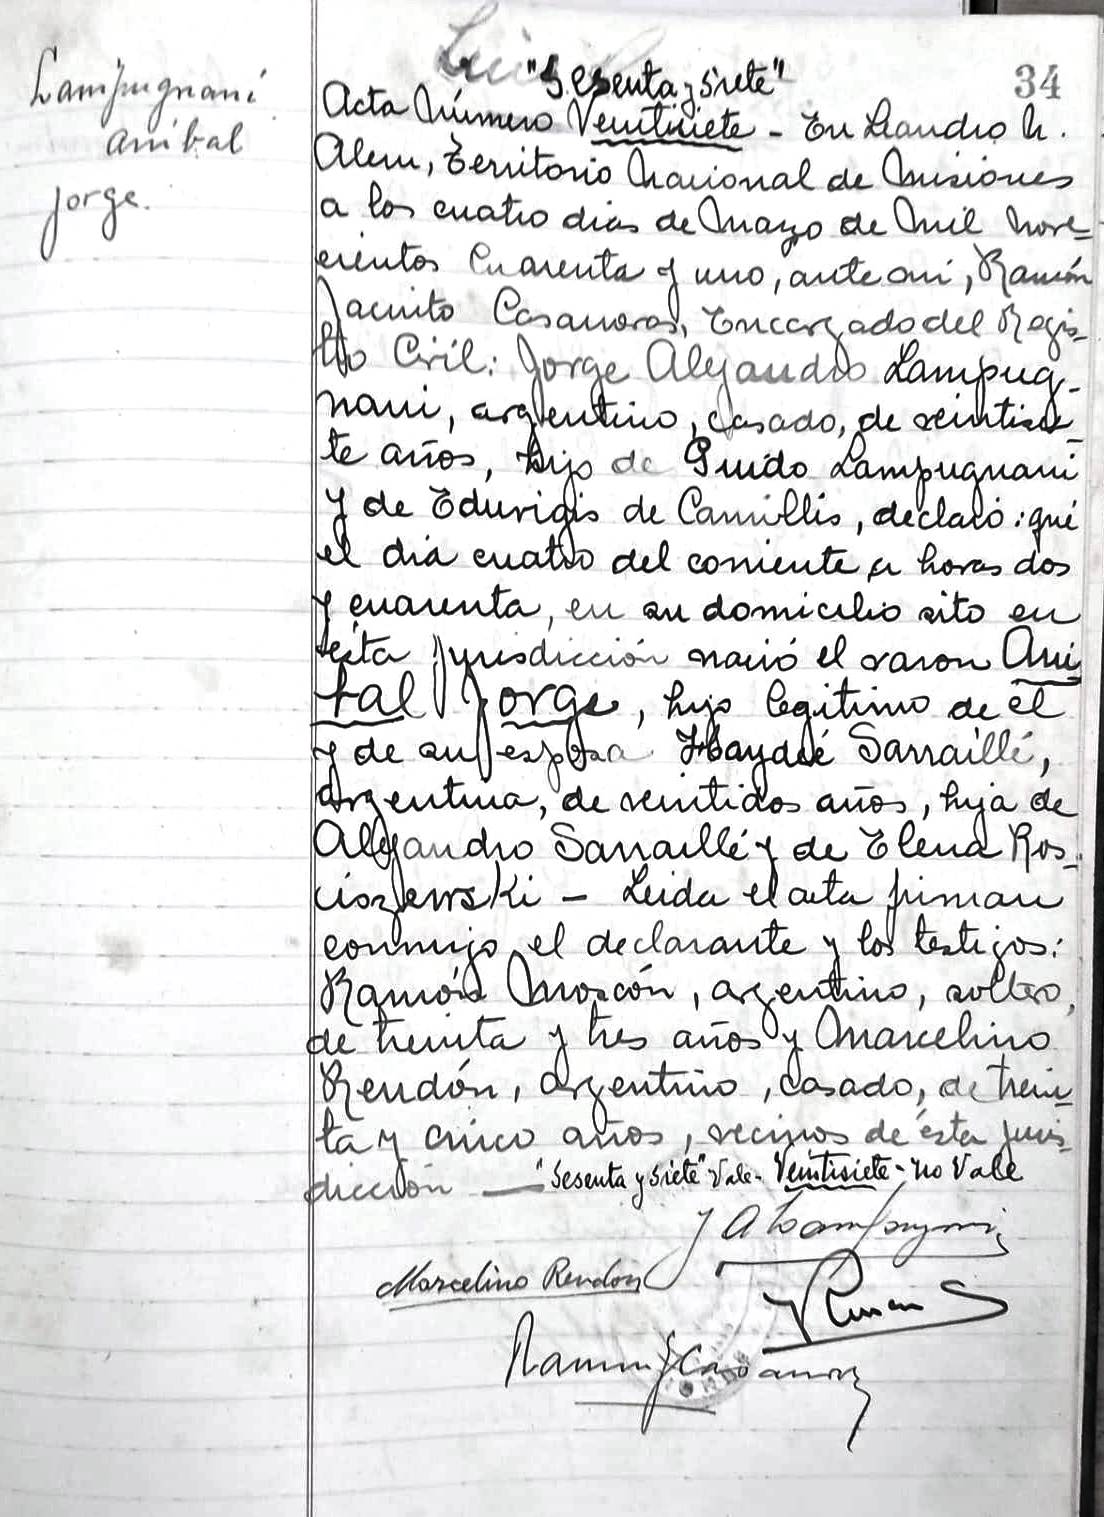 Lampugnani
Anibal
Jorge.
34
"Sesenta y Siete"
Acta Número Veintisiete - En Leandro N.
Alem, Territorio Nacional de Misiones
a los cuatro dias de Mayo de Mil Nove-
cientos Cuarenta y uno, ante mi, Ramón
Jacinto Casanova, Encargado del Regis-
tro Civil: Jorge Alejandro Lampug-
nani, argentino, casado, de veintisie-
te años, hijo de Guido Lampugnani
y de Eduvigis de Camillis, declaró: que
el dia cuatro del corriente a horas dos
y cuarenta, en su domicilio sito en
ésta jurisdicción nació el varon Ani
bal Jorge, hijo legitimo de él
y de su esposa Haydeé Sarraillé,
argentina, de veintidos años, hija de
Alejandro Sarraillé y de Elena Ros-
ciszewski - Leida el acta firman
conmigo el declarante y los testigos:
Ramón Moscón, argentino, soltero,
de treinta y tres años y Marcelino
Rendón, argentino, casado, de trein-
ta y cinco años, vecinos de ésta juris-
dicción — "Sesenta y Siete" Vale - Veintisiete - no Vale
J A Lampugnani
Marcelino Rendon
Ramon J Casanova